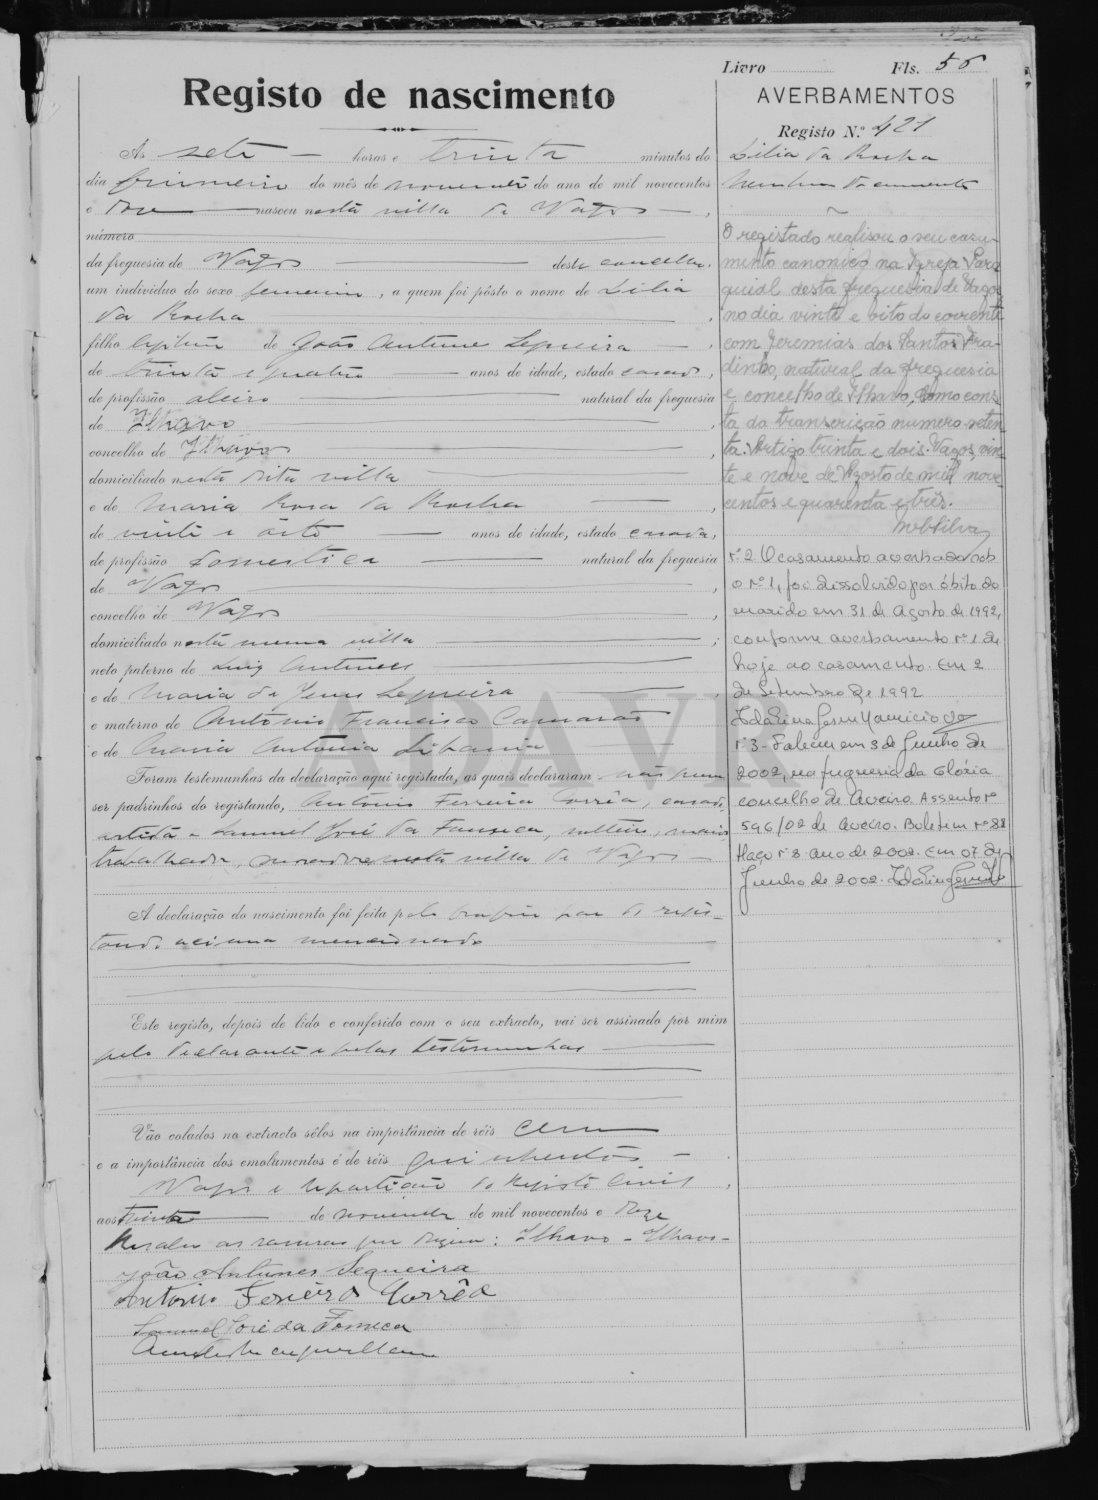 Livro Fls. 56
Registo de nascimento
AVERBAMENTOS
Registo N.º 421
Ás sete horas e trinta minutos do
dia primeiro do mês de novembro do ano de mil novecentos
e doze nasceu nesta villa de Vagos,
número
da freguesia de Vagos deste concelho,
um indivíduo do sexo feminino, a quem foi pôsto o nome de Lilia
da Rocha,
filho legitimo de João Antunes Sequeira,
de trinta e quatro anos de idade, estado casado,
de profissão oleiro natural da freguesia
de Ilhavo,
concelho de Ilhavo,
domiciliado nesta dita villa
e de Maria Rosa da Rocha,
de vinte e oito anos de idade, estado casada,
de profissão domestica natural da freguesia
de Vagos
concelho de Vagos,
domiciliado nesta mesma villa;
neto paterno de Luiz Antunes
e de Maria de Jesus Sequeira,
e materno de António Francisco Camarão
e de Maria Antónia Libania
Foram testemunhas da declaração aqui registada, as quais declararam não serem
ser padrinhos do registando, António Ferreira Corrêa, casado,
artista e Samuel José da Fonseca, solteiro, maior,
trabalhador, moradores nesta villa de Vagos
A declaração do nascimento foi feita pelo proprio pae do regis-
tando acima mencionado
Este registo, depois de lido e conferido com o seu extracto, vai ser assinado por mim
pelo declarante e pelas testemunhas
Vão colados no extracto sêlos na importância de réis cem
e a importância dos emolumentos é de réis quinhentos
Vagos e repartição do Registo Civil,
aos trinta de novembro de mil novecentos e doze
Resalvo as rasuras que dizem: Ilhavo - Ilhavo -
João Antunes Sequeira
António Ferreira Corrêa
Samuel José da Fonseca
Lilia da Rocha
Nenhum documento
O registado realisou o seu casa-
mento canonico na Igreja Paro-
quial desta freguesia de Vagos
no dia vinte e oito do corrente
com Jeremias dos Santos Fra-
dinho, natural da freguesia
e concelho de Ilhavo, como cons-
ta da transcrição numero seten-
ta. Artigo trinta e dois. Vagos, vin-
te e nove de Agosto de mil nove-
centos e quarenta e três.
Silva
nº 2 O casamento averbado sob
o nº 1, foi dissolvido por óbito do
marido em 31 de Agosto de 1992,
conforme averbamento nº 1 de
hoje ao casamento. Em 2
de Setembro de 1992
nº 3 - Faleceu em 3 de Junho de
2002, na freguesia da Glória
concelho de Aveiro. Assento nº
596/02 de Aveiro. Boletim nº 88
Maço nº 3 ano de 2002. Em 07 de
Junho de 2002.
ADAVR